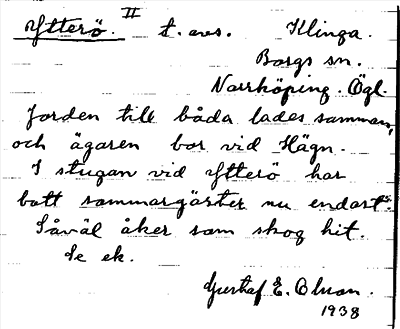 Ytterö. II t. avs. Klinga.
Borgs sn.
Norrköping. Ögl.
Jorden till båda lades samman,
och ägaren bor vid Hägn.
I stugan vid Ytterö har
bott sommargäster nu endast.
Såväl åker som skog hit.
Se ek.
Gustaf E. Olsson.
1938